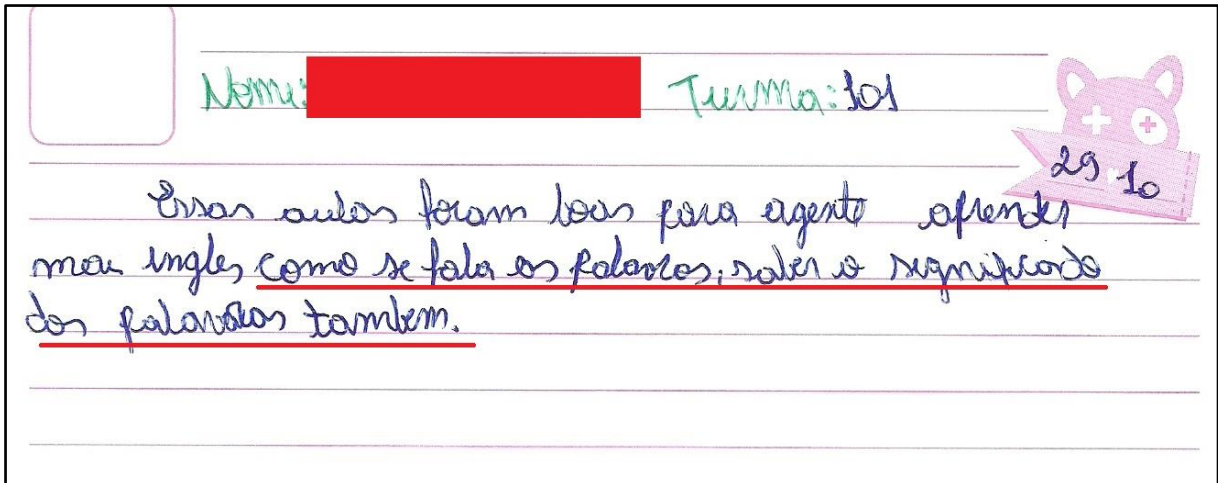 Nome: Turma: 101
29 10
Essas aulas foram boas para agente aprender
mais ingles como se fala as palavras, saber o significado
das palavras tambem.